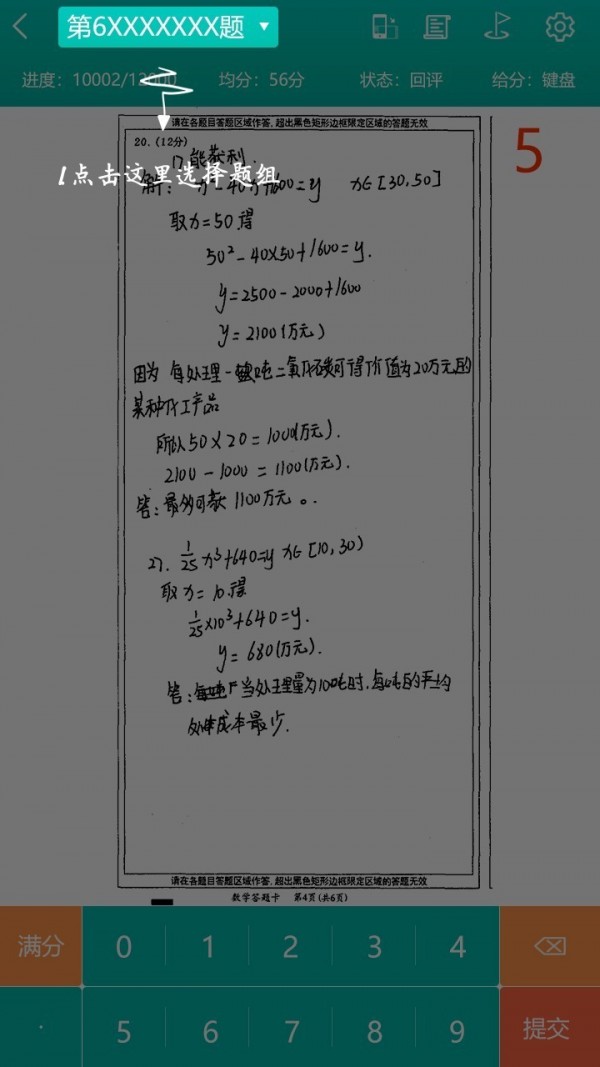 第6XXXXXXX题
进度：10002/12000 均分：56分 状态：回评 给分：键盘
请在各题目答题区域作答，超出黑色矩形边框限定区域的答题无效
20.（12分）
5
1）能获利.
1点击这里选择题组
解： +1600=y x∈[30,50]
取x=50得
50²-40×50+1600=y.
y=2500-2000+1600
y=2100(万元)
因为 每处理一吨二氧化碳可得价值为20万元的
某种化工产品
所以50×20=1000(万元).
2100-1000=1100(万元).
答：最多可获1100万元。
2）. 1/25 x³+640=y x∈[10,30)
取x=10.得
1/25×10³+640=y.
y=680(万元).
答： 当处理量为 吨时.每吨的平均
成本最少.
请在各题目答题区域作答，超出黑色矩形边框限定区域的答题无效
数学答题卡 第4页(共6页)
满分 0 1 2 3 4
. 5 6 7 8 9 提交